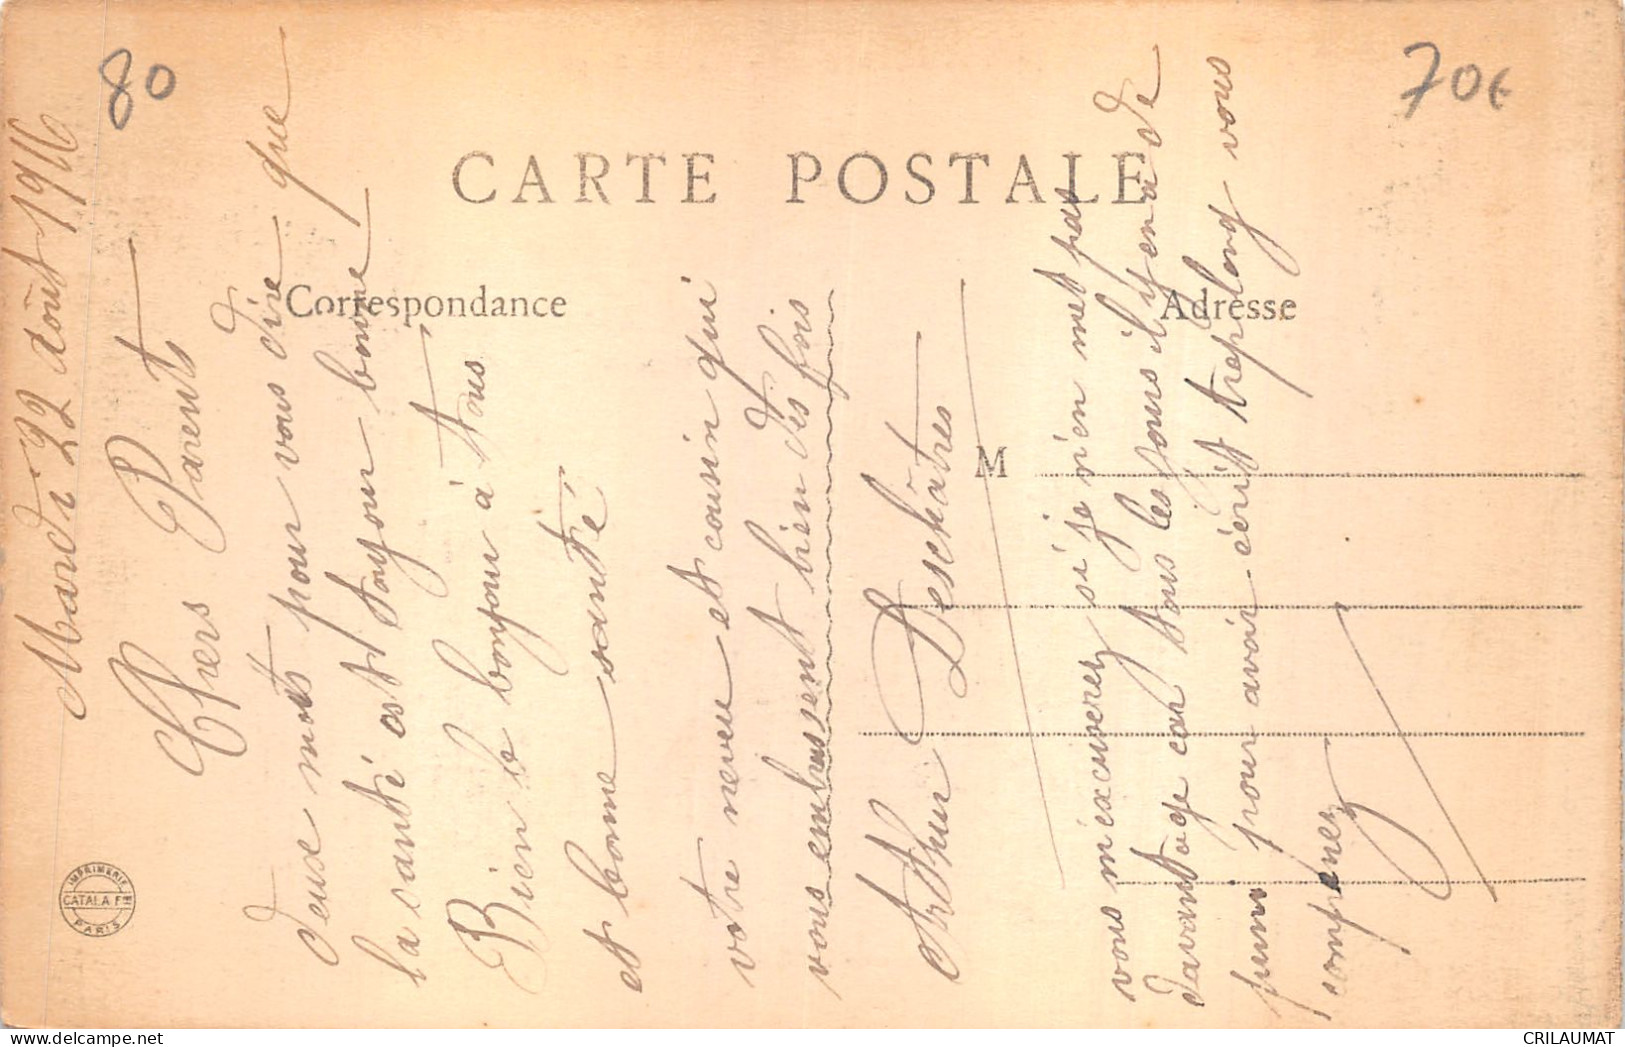 80
70€
CARTE POSTALE
Correspondance
Adresse
M
Mardi 22 Août 1916
Chers Parents
deux mots pour vous dire que
la santé est toujour bonne
Bien le bonjour à tous
et bonne santé
votre neveu et cousin qui
vous embrassent bien des fois
Arthur Deschâtres
vous m'excuserez si je n'en met pas
davantage car tous les jours il y en a de
pour avoir écrit trop long vous
comprenez
IMPRIMERIE
CATALA FRES
PARIS
CRILAUMAT